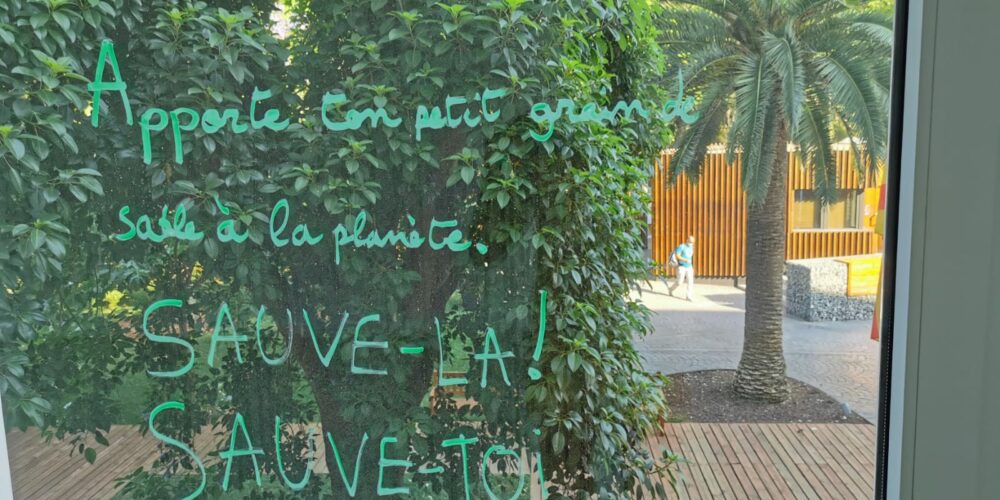 Apporte ton petit grain de
sable à la planète.
SAUVE-LA!
SAUVE-TOI